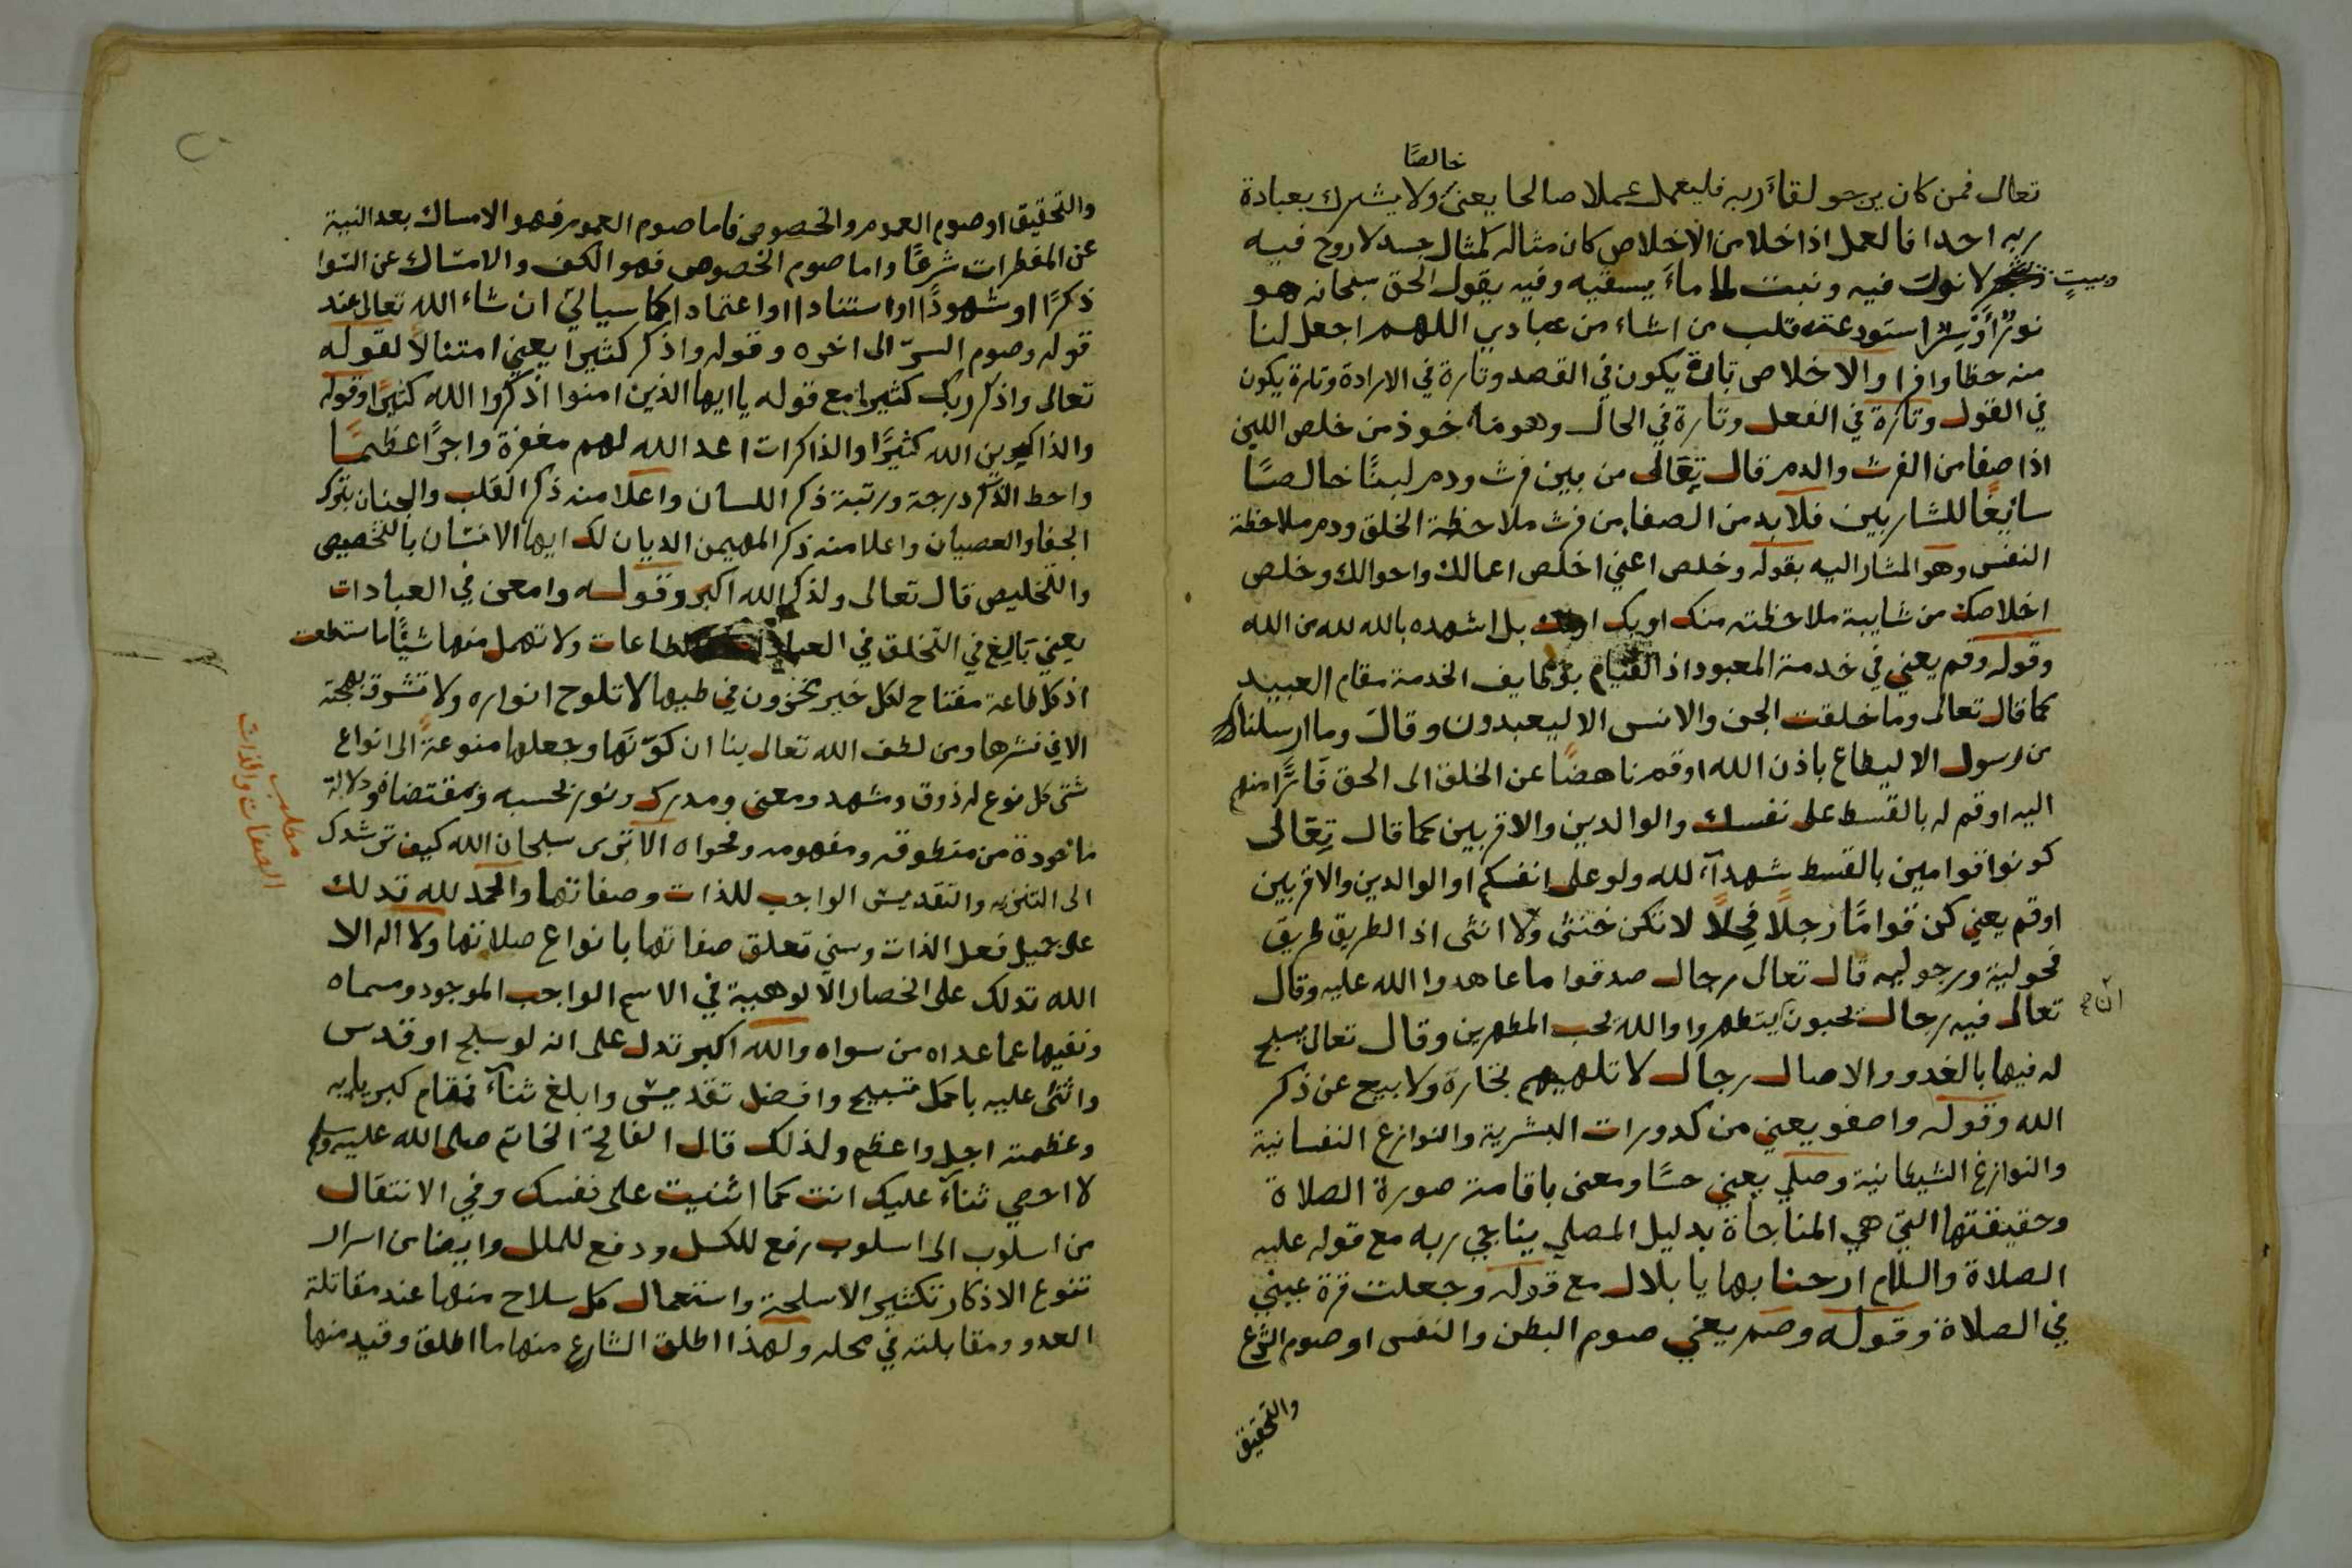 خالصًا
تعالى فمن كان يرجو لقاء ربه فليعمل عملا صالحا يعني ولا يشرك بعبادة
ربه احدا فالعمل اذا خلا من الاخلاص كان مثاله كمثال جسد لا روح فيه
وبيتٍ لا نور فيه ونبت لا ماءَ يسقيه وفيه يقول الحق سبحانه هو
نورٌ وسر استودعته قلب من اشاء من عبادي اللهم اجعل لنا
منه حظا وافرا والاخلاص تارة يكون في القصد وتارة في الارادة وتارة يكون
في القول وتارة في الفعل وتارة في الحال وهو ماخوذ من خلص اللبن
اذا صفا من الفرث والدم قال تعالى من بين فرث ودم لبنًا خالصًا
سائغًا للشاربين فلا بد من الصفا من فرث ملاحظة الخلق ودم ملاحظة
النفس وهو المشار اليه بقوله وخلص اعني اخلص اعمالك واحوالك وخلص
اخلاصك من شايبة ملاحظته منك او بك او بل اشهده بالله لله من الله
وقوله وقم يعني في خدمة المعبود اذ القيام بوظايف الخدمة مقام العبيد
كما قال تعالى وما خلقت الجن والانس الا ليعبدون وقال وما ارسلنا
من رسول الا ليطاع باذن الله او قم ناهضًا عن الخلق الى الحق فارًّا منهم
اليه او قم له بالقسط على نفسك والوالدين والاقربين كما قال تعالى
كونوا قوامين بالقسط شهدآء لله ولو على انفسكم او الوالدين والاقربين
او قم يعني كن قوامًا رجلًا فحلًا لا تكن خنثى ولا انثى اذ الطريق طريق
فحولية ورجوليه قال تعالى رجال صدقوا ما عاهدوا الله عليه وقال
تعالى فيه رجال يحبون ان يتطهروا والله يحب المطهرين وقال تعالى يسبح
له فيها بالغدو والاصال رجال لا تلهيهم تجارة ولا بيع عن ذكر
الله وقوله واصفو يعني من كدورات البشرية والنوازع النفسانية
والنوازغ الشيطانية وصلي يعني حسًا ومعنى باقامة صورة الصلاة
وحقيقتها التي هي المناجاة بدليل المصلي يناجي ربه مع قوله عليه
الصلاة والسلام ارحنا بها يا بلال مع قوله وجعلت قرة عيني
في الصلاة وقوله وصم يعني صوم البطن والنفس او صوم الشرع
والتحقيق
والتحقيق او صوم العموم والخصوص فاما صوم العموم فهو الامساك بعد النية
عن المفطرات شرعًا واما صوم الخصوص فهو الكف والامساك عن السوا
ذكرًا او شهودًا او استنادا او اعتمادا كما سياتي ان شاء الله تعالى عند
قوله وصوم السرّ الى اخره وقوله واذكر كثيرا يعني امتثالًا لقوله
تعالى واذكر ربك كثيرا مع قوله يا ايها الذين امنوا اذكروا الله كثيرًا وقوله
والذاكرين الله كثيرًا والذاكرات اعد الله لهم مغفرة واجرًا عظيمًا
واحط الذكر درجة ورتبة ذكر اللسان واعلا منه ذكر القلب والجنان بترك
الجفا والعصيان واعلا منه ذكر المهيمن الديان لك ايها الانسان بالتخصيص
والتخليص قال تعالى ولذكر الله اكبر وقوله وامعن في العبادات
يعني بَالِغ في التخلق في العبادات والطاعات ولا تهمل منها شيئًا ما استطعت
اذ كل طاعة مفتاح لكل خير مخزون في طيها لا تلوح انواره ولا تشرق بهجته
الا في نشرها ومن لطف الله تعالى بنا ان كوّنها وجعلها منوعةً الى انواع
شتى كل نوع له ذوق ومشهد ومعنى ومدرك ونور بحسبه وبمقتضاه ودلالة
ماخوذة من منطوقه ومفهومه وفحواه الا ترى سبحان الله كيف ترشدك
مطلب
الصفات والذات
الى التنزيه والتقديس الواجب للذات وصفاتها والحمد لله تدلك
على جميل فعل الذات وسني تعلق صفاتها بانواع صلاتها ولا اله الا
الله تدلك على انحصار الالوهية في الاسم الواجب الموجود ومسماه
ونفيها عما عداه من سواه والله اكبر تدل على انه لو سبح او قدس
واثنى عليه باكمل تسبيح وافضل تقديس وابلغ ثنآء فمقام كبريايه
وعظمته اجل واعظم ولذلك قال الفاتح الخاتم صلى الله عليه وسلم
لا احصي ثنآء عليك انت كما اثنيت على نفسك وفي الانتقال
من اسلوب الى اسلوب رفع للكسل ودفع للملل وايضا من اسرار
تنوع الاذكار تكثير الاسلحة واستعمال كل سلاح منها عند مقاتلة
العدو ومقابلته في محله ولهذا اطلق الشارع منها ما اطلق وقيد منها